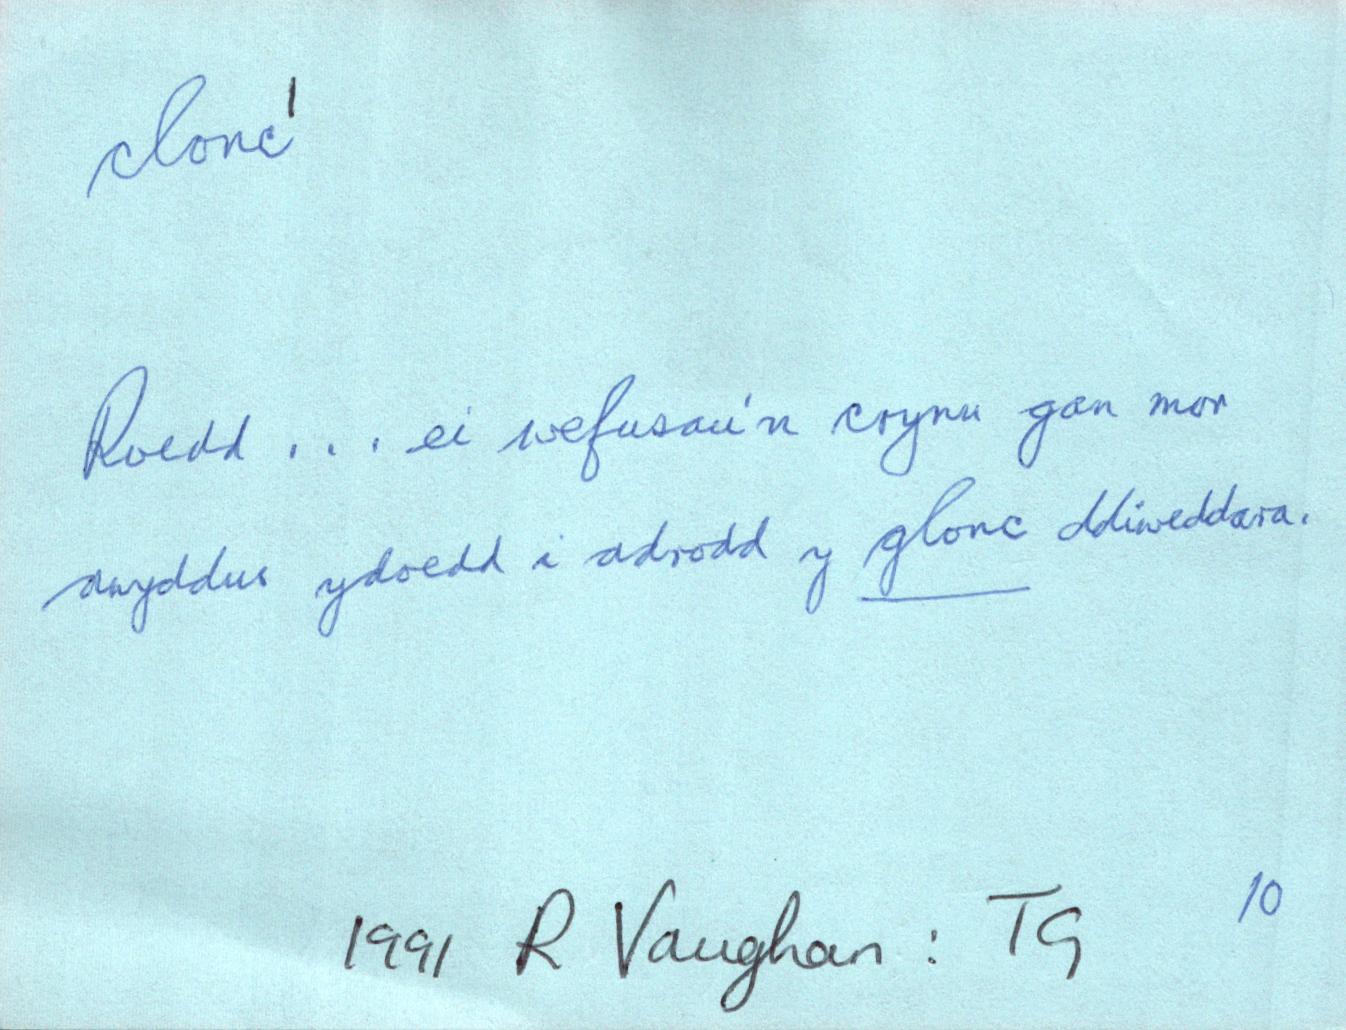 clonc¹
Roedd . . . ei wefusau'n crynu gan mor
awyddus ydoedd i adrodd y glonc ddiweddara.
1991 R Vaughan : TG 10